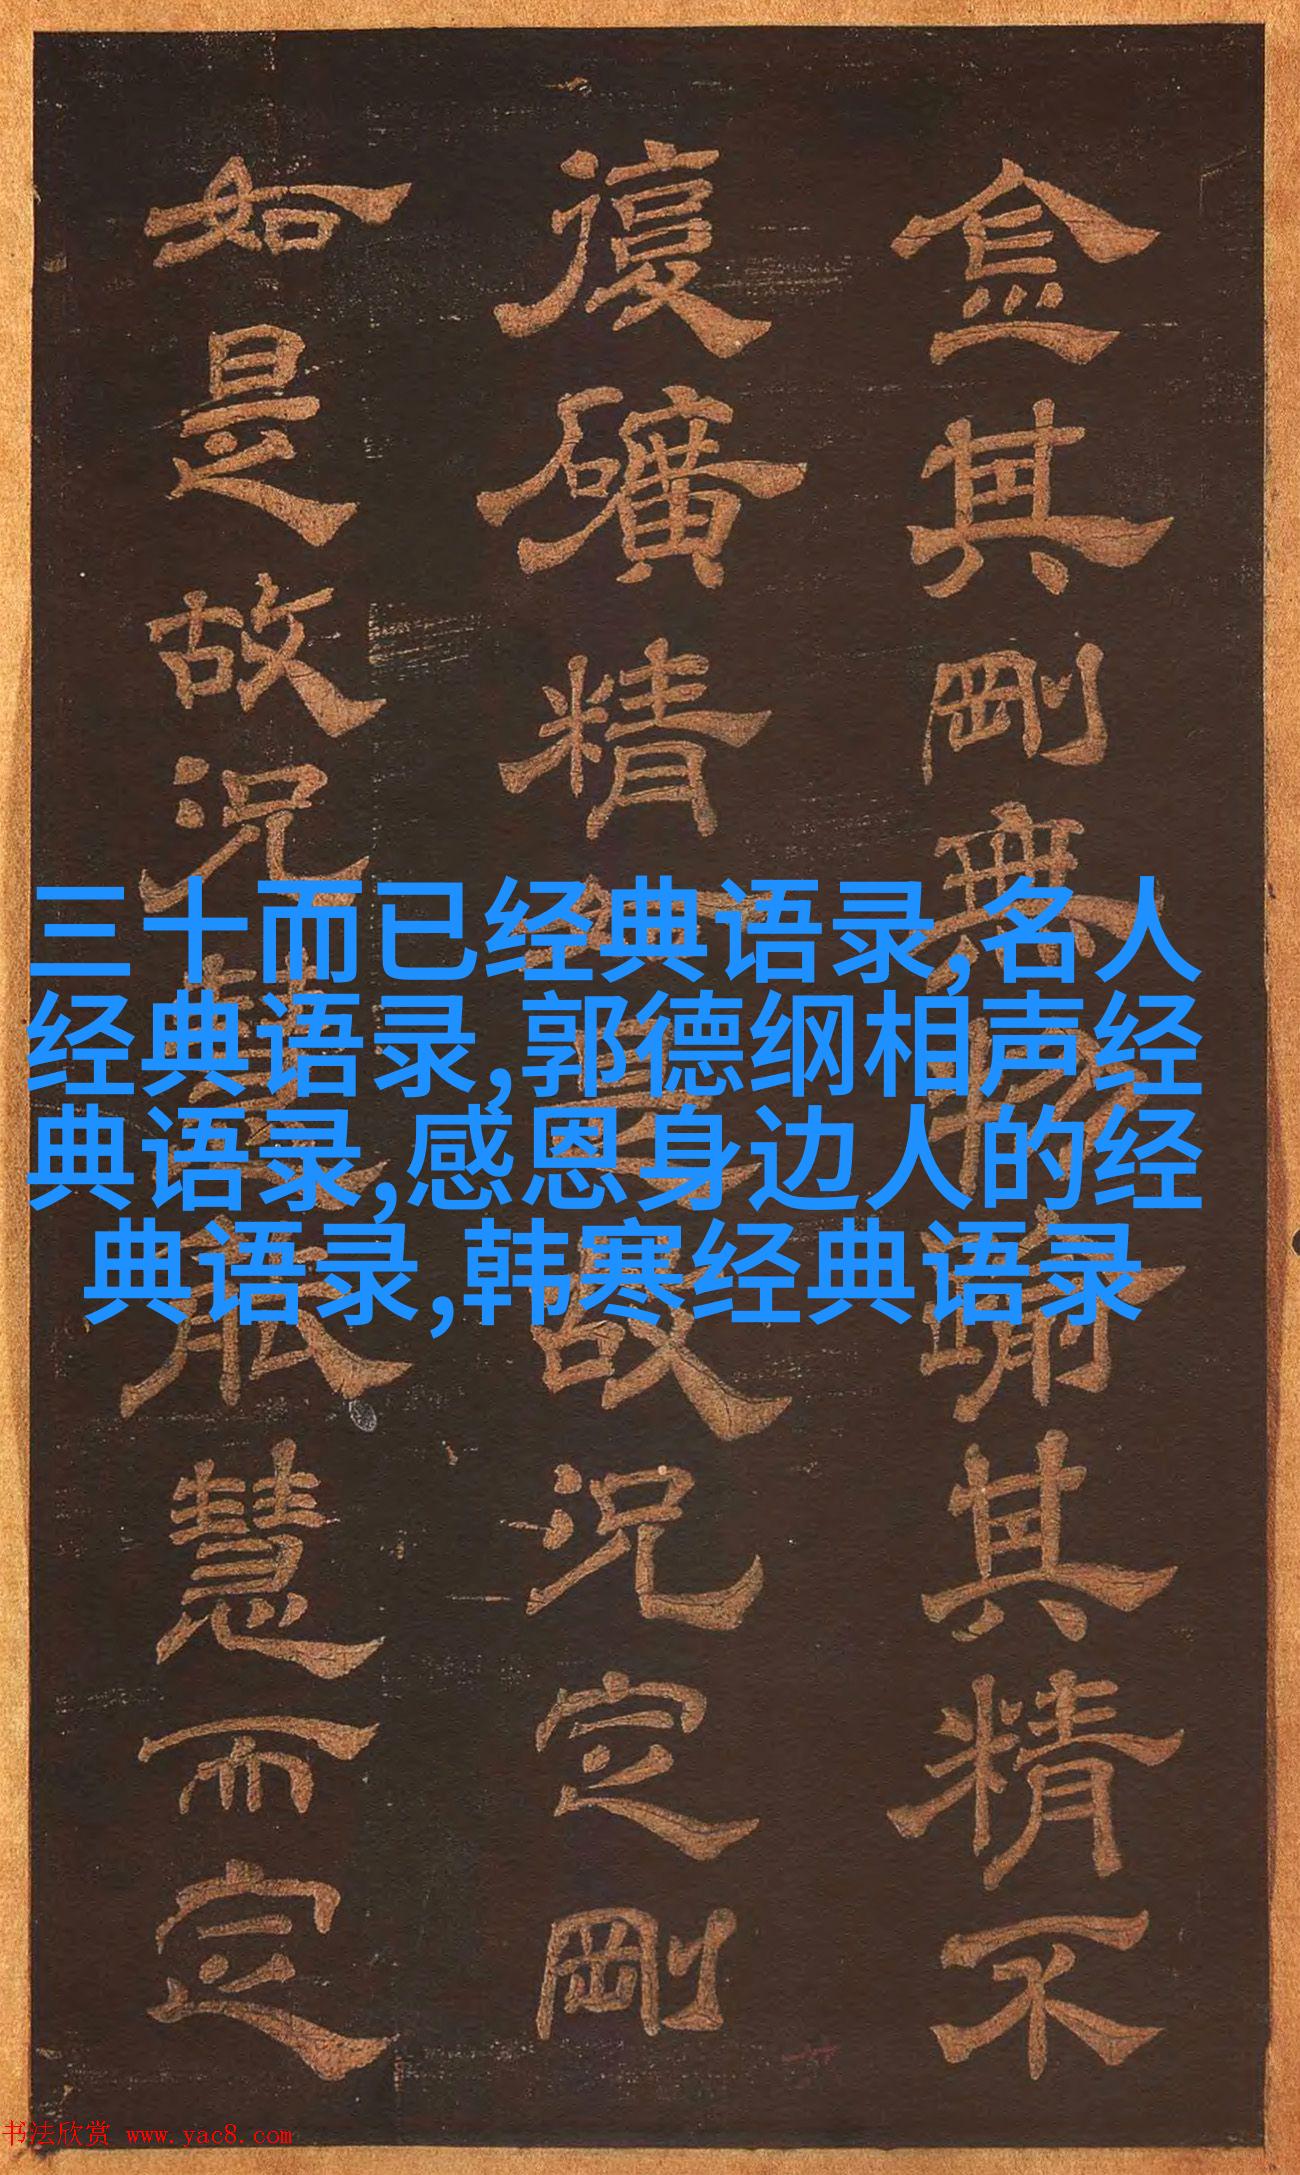 金其剛無物踰其精不
復礦精故況定剛
如是故況慧能慧而定
三十而已经典语录,名人
经典语录,郭德纲相声经
典语录,感恩身边人的经
典语录,韩寒经典语录
书法欣赏 www.yac8.com